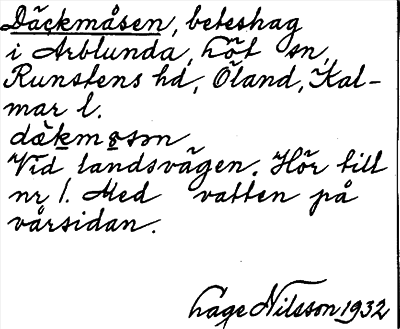 Däckmåsen, beteshag
i Arblunda, Löt sn,
Runstens hd, Öland, Kal-
mar l.
Vid landsvägen. Hör till
nr 1. Med vatten på
vårsidan.
Lage Nilsson 1932